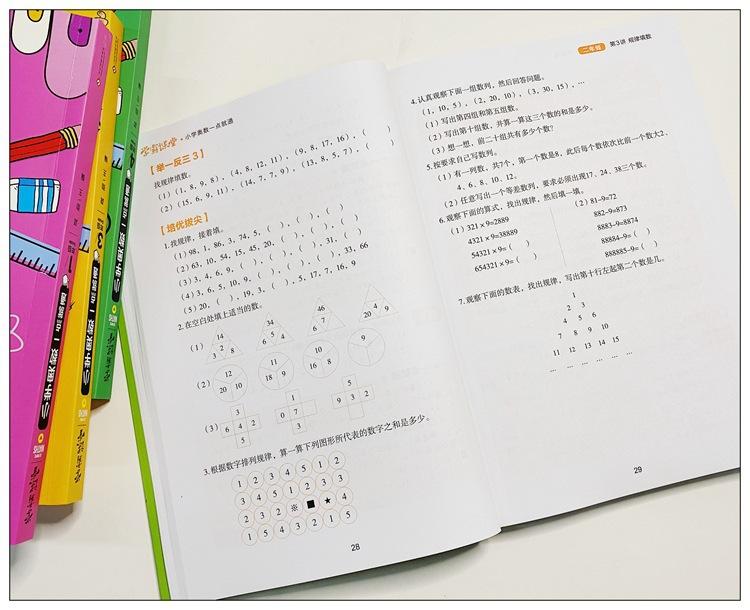 学霸课堂·小学奥数一点就通
【举一反三3】
找规律填数。
(1)(1,8,9,8),(4,8,12,11),(9,8,17,16),( )
(2)(15,6,9,11),(14,7,7,9),(13,8,5,7),( )
【培优拔尖】
1.找规律,接着填。
(1)98,1,86,3,74,5,( ),( ),( )
(2)63,10,54,15,45,20,( ),( ),( )
(3)3,4,6,9,( ),( ),( ),31,( )
(4)3,6,5,10,9,( ),( ),( ),33,66
(5)20,( ),19,3,( ),5,17,7,16,9
2.在空白处填上适当的数。
(1) 14 3 2 8 34 6 5 4 46 6 7 20 4 9
(2) 12 20 10 11 18 9 10 16 8 9
(3) 3 6 4 2 5 1 0 7 3 5 9 3 2
3.根据数字排列规律,算一算下列图形所代表的数字之和是多少。
1 2 3 4 5 1 2
3 4 5 1 2 3 3
2 3 2 ※ ■ ★ 4
1 5 4 3 2 1 5
28
二年级 第3讲 规律填数
4.认真观察下面一组数列,然后回答问题。
(1,10,5),(2,20,10),(3,30,15),…
(1)写出第四组和第五组数。
(2)写出第十组数,并算一算这三个数的和是多少。
(3)想一想,前二十组共有多少个数?
5.按要求自己写数列。
(1)有一列数,共7个,第一个数是8,此后每个数依次比前一个数大2、
4、6、8、10、12。
(2)任意写出一个等差数列,要求必须出现17、24、38三个数。
6.观察下面的算式,找出规律,然后填一填。
(1)321×9=2889 (2)81-9=72
4321×9=38889 882-9=873
54321×9=( ) 8883-9=8874
654321×9=( ) 88884-9=( )
888885-9=( )
7.观察下面的数表,找出规律,写出第十行左起第二个数是几。
1
2 3
4 5 6
7 8 9 10
11 12 13 14 15
… … … … … …
29